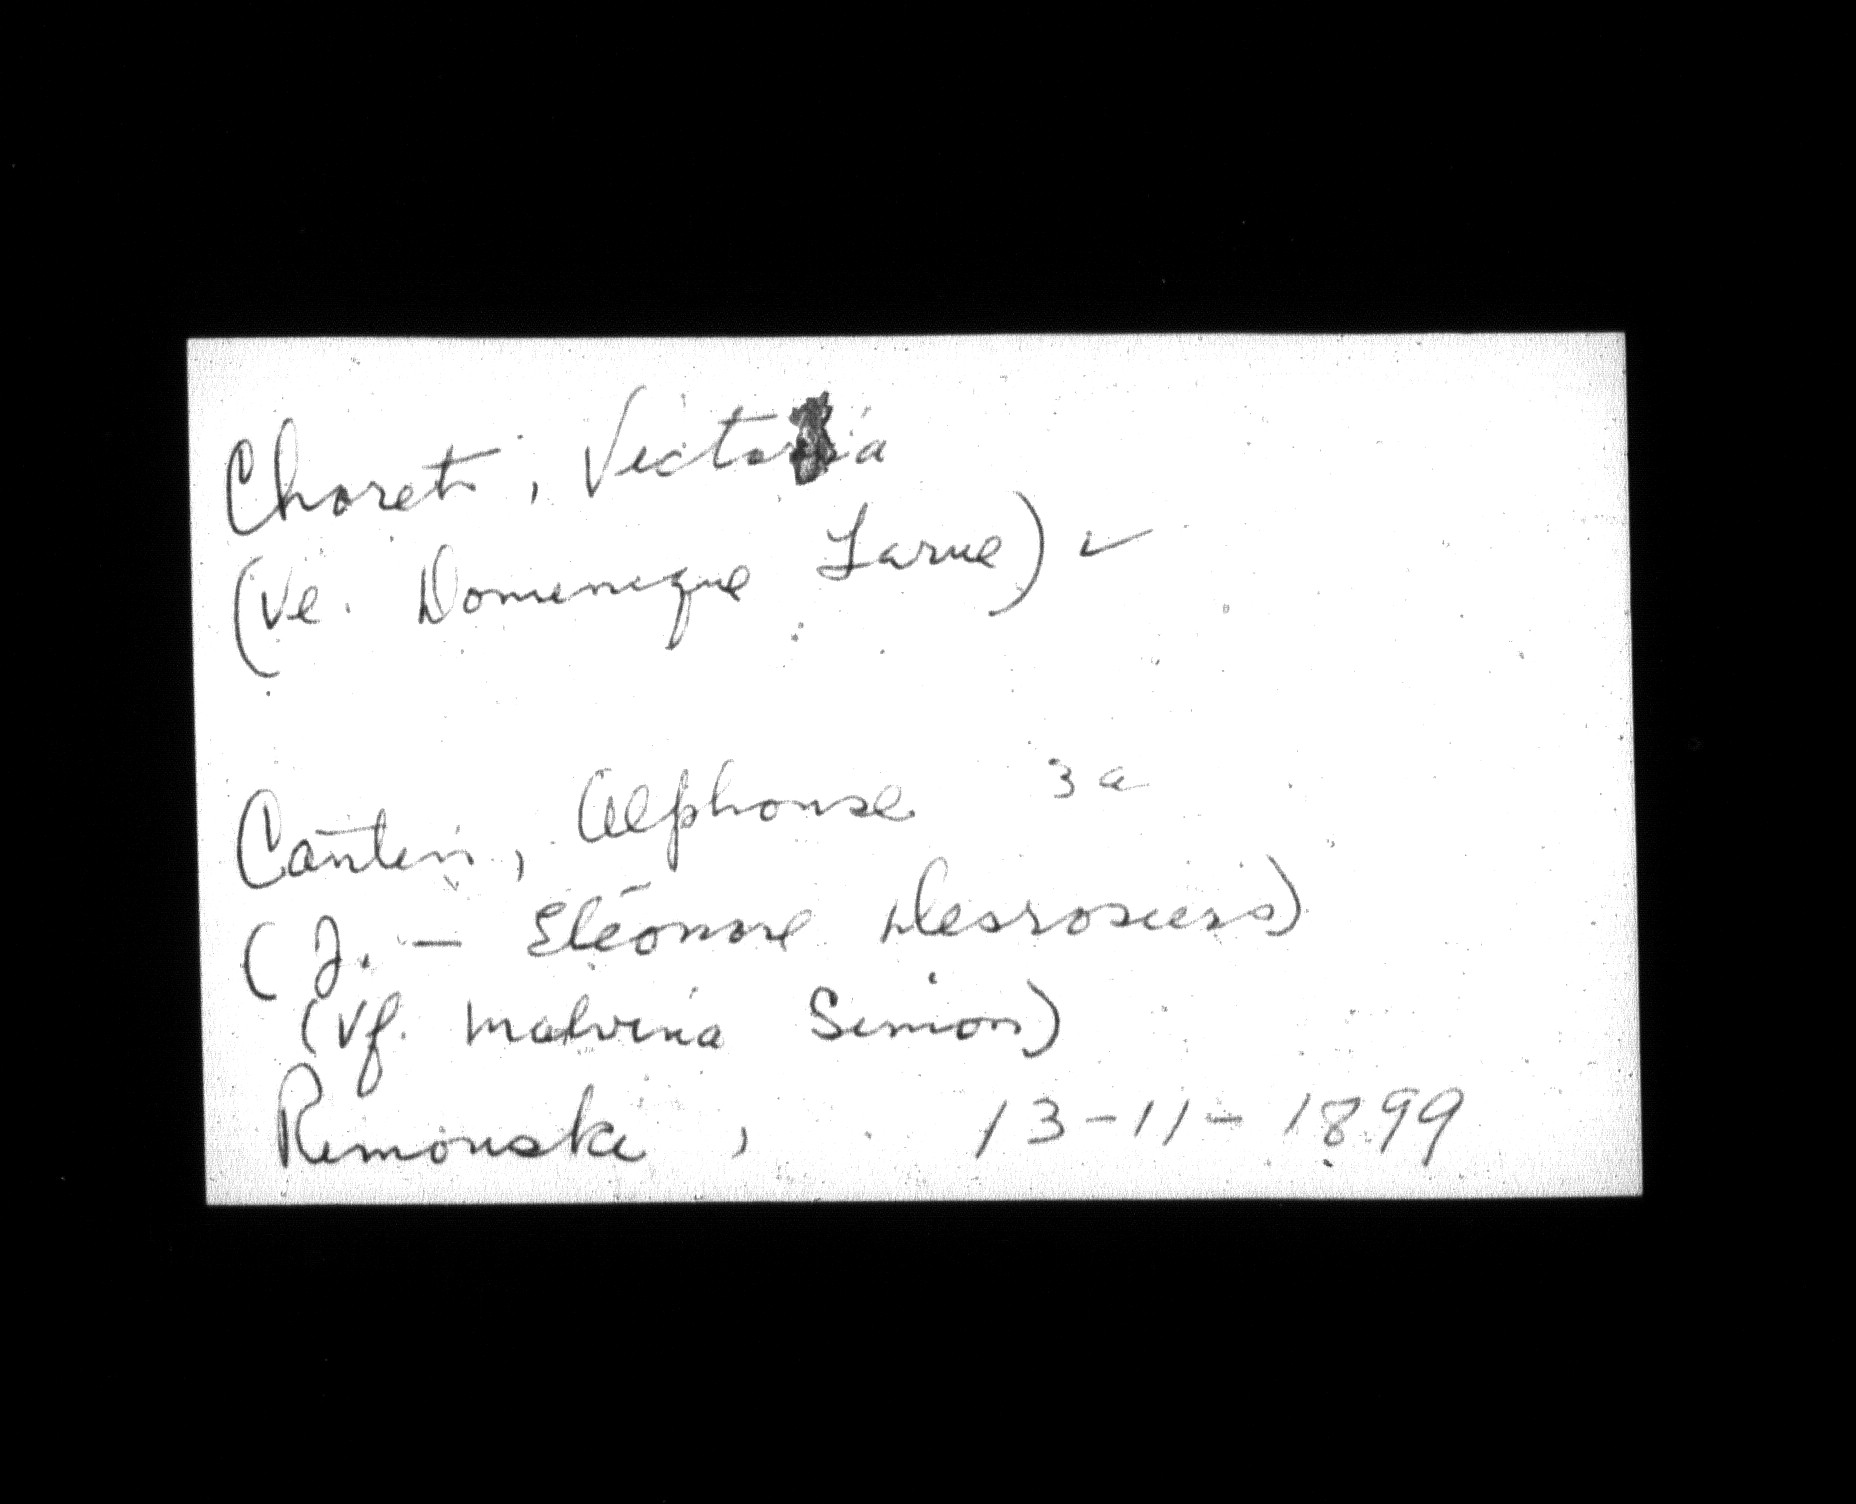 Choret, Victoria
(Ve. Dominique Larue) ✓
Cantin, Alphonse 3 a
(J. - Eléonore Desrosiers)
(Vf. Malvina Simon)
Rimouski, 13-11-1899